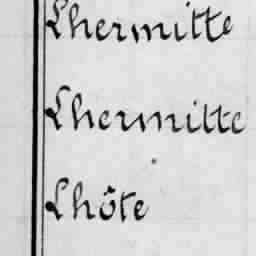 Lhermitte
Lhermitte
Lhôte